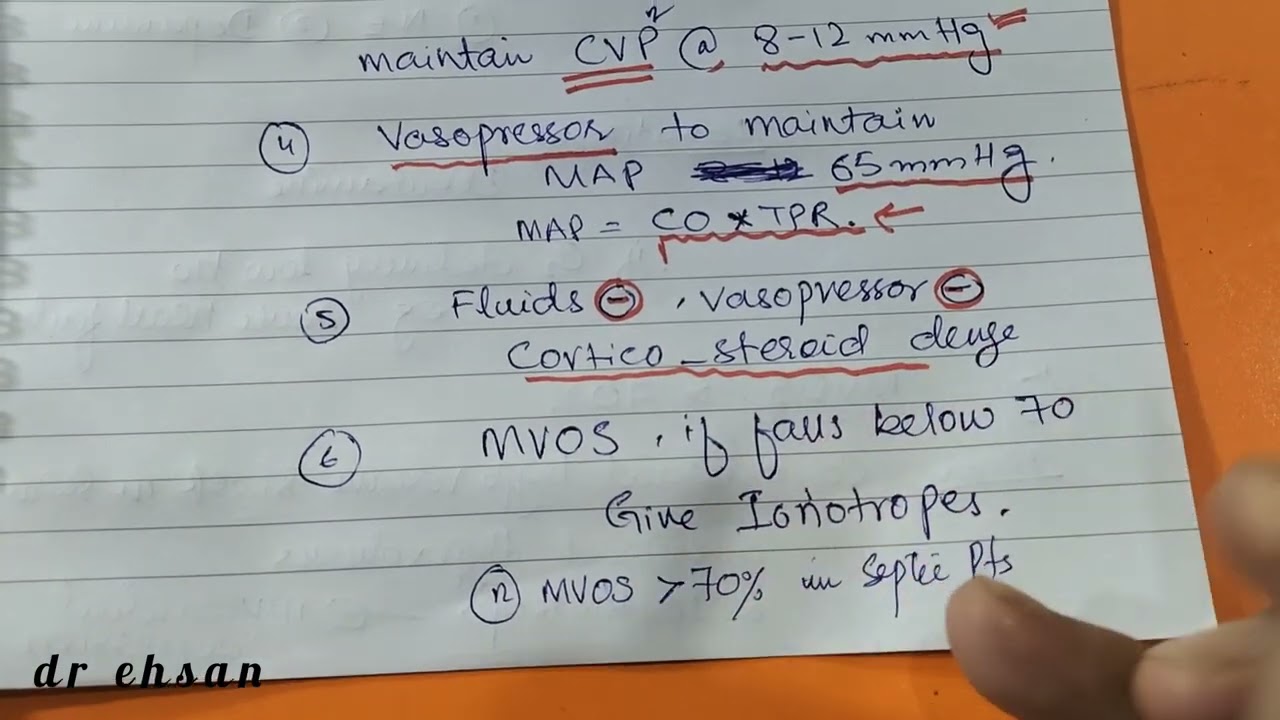 n
maintain CVP @ 8-12 mmHg
④ Vasopressor to maintain
MAP 65 mmHg.
MAP = CO * TPR. ←
⑤ Fluids ⊖, vasopressor ⊖
Cortico-steroid
⑥ MVOS, if falls below 70
Give Ionotropes.
ⓝ MVOS > 70% in Septic Pts
dr ehsan